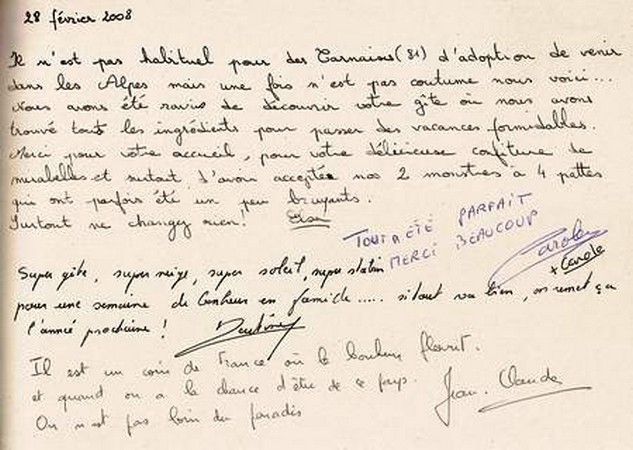 28 février 2008
Il n'est pas habituel pour des Tarnais(81) d'adoption de venir
dans les Alpes mais une fois n'est pas coutume nous voici...
Nous avons été ravis de découvrir votre gîte où nous avons
trouvé tous les ingrédients pour passer des vacances formidables.
Merci pour votre accueil, pour votre délicieuse confiture de
mirabelles et surtout d'avoir acceptée nos 2 monstres à 4 pattes
qui ont parfois été un peu bruyants.
Surtout ne changez rien!
TOUT A ÉTÉ PARFAIT
MERCI BEAUCOUP
Carole
+ Carole
Super gîte, super neige, super soleil, super station
pour une semaine de bonheur en famille..... si tout va bien, on remet ça
l'année prochaine!
Il est un coin de France où le bonheur fleurit.
et quand on a la chance d'être de ce pays.
On n'est pas loin du paradis
Jean.Claude